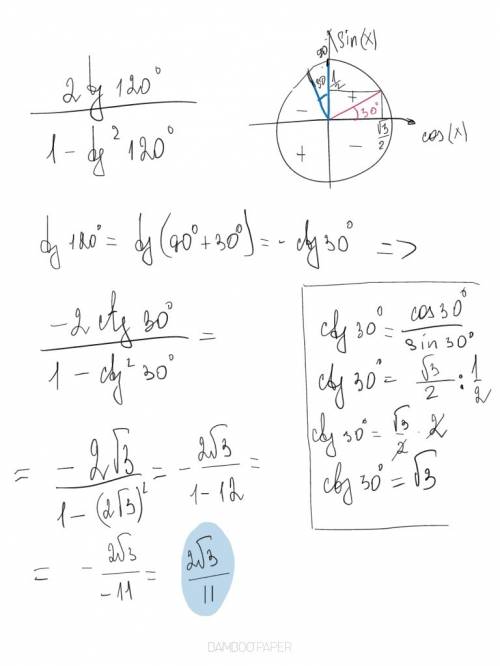 2 tg 120°
1 - tg² 120°
sin(x)
90
30
1/2
+
-
30°
√3/2
cos(x)
+
-
tg 120° = tg(90° + 30°) = - ctg 30° =>
-2 ctg 30°
1 - ctg² 30°
=
ctg 30° = cos 30° / sin 30°
ctg 30° = √3/2 : 1/2
ctg 30° = √3/2 · 2
ctg 30° = √3
= -2√3 / 1 - (2√3)² = - 2√3 / 1 - 12 =
= - 2√3 / -11 = 2√3 / 11
BAMBOOPAPER